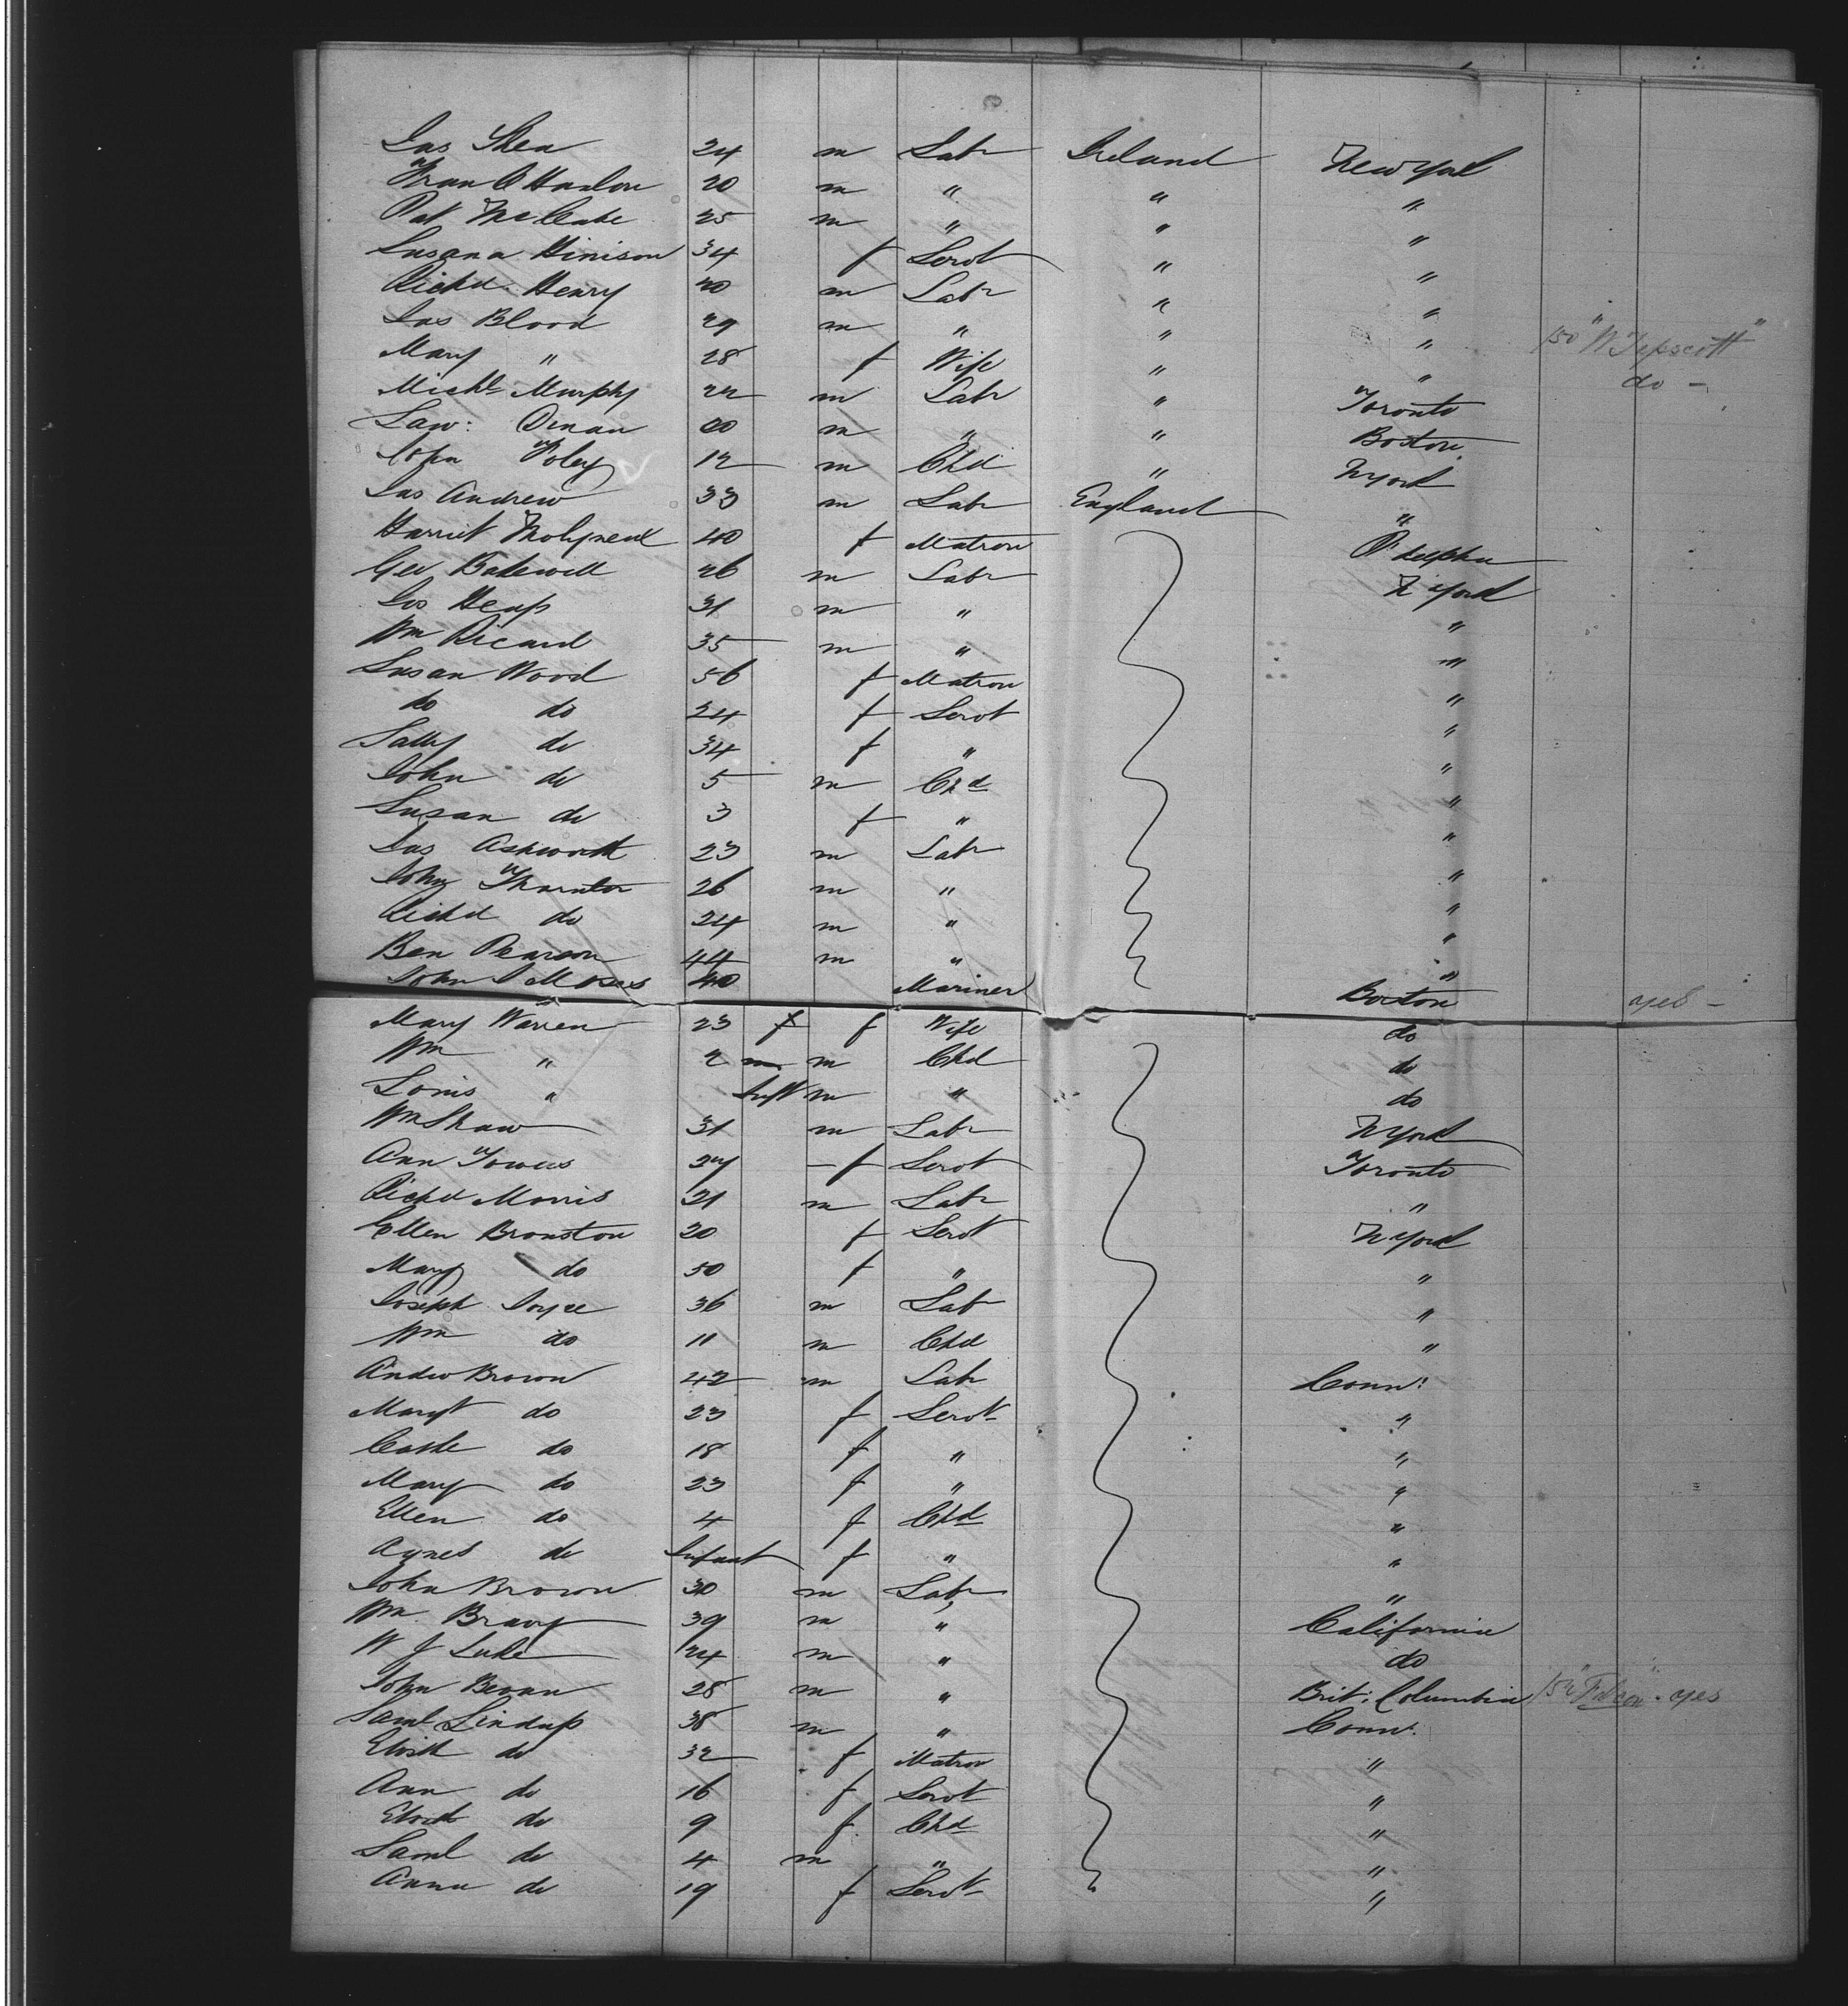 Jas Shea 24 m Labr Ireland New York
Fran O Hanlon 20 m " " "
Pat McCabe 25 m " " "
Susana Hinison 34 f Servt " "
Richd Henry 20 m Labr " "
Jas Blood 29 m " " " 150 "W Tapscott"
Mary " 28 f Wife " " do -
Michl Murphy 22 m Labr " Toronto
Law: Dinan 20 m " " Boston
John Foley 12 m Chd " NYork
Jas Andrew 33 m Labr England "
Harriet Molyneux 40 f Matron P'delphia
Geo Bakewell 26 m Labr N York
Jos Heap 31 m " "
Wm Ricard 35 m " "
Susan Wood 56 f Matron "
do do 24 f Servt "
Sally do 34 f " "
John do 5 m Chd "
Susan do 3 f " "
Jas Ashworth 23 m Labr "
John Thornton 26 m " "
Richd do 24 m " "
Ben Pearson 44 m " "
John I Moses 40 Mariner Boston
Mary Warren 23 f f Wife do
Wm " 2 m m Chd do
Louis " Inft m " do
Wm Shaw 31 m Labr NYork
Ann Towers 27 - f Servt Toronto
Richd Morris 21 m Labr "
Ellen Bronston 20 f Servt N York
Mary do 50 f " "
Joseph Joyce 36 m Lab "
Wm do 11 m Chd "
Andw Brown 42 m Labr Conn:
Margt do 23 f Servt "
Cathe do 18 f " "
Mary do 23 f " "
Ellen do 4 f Chd "
Agnes do Infant f " "
John Brown 30 m Labr "
Wm Bravy 39 m " California
W J Luke 24 m " do
John Bevan 28 m " Brit: Columbia
Saml Lindup 38 m " Conn:
Elizth do 32 f Matron "
Ann do 16 f Servt "
Elizth do 9 f Chd "
Saml do 4 m " "
Anna do 19 f Servt "